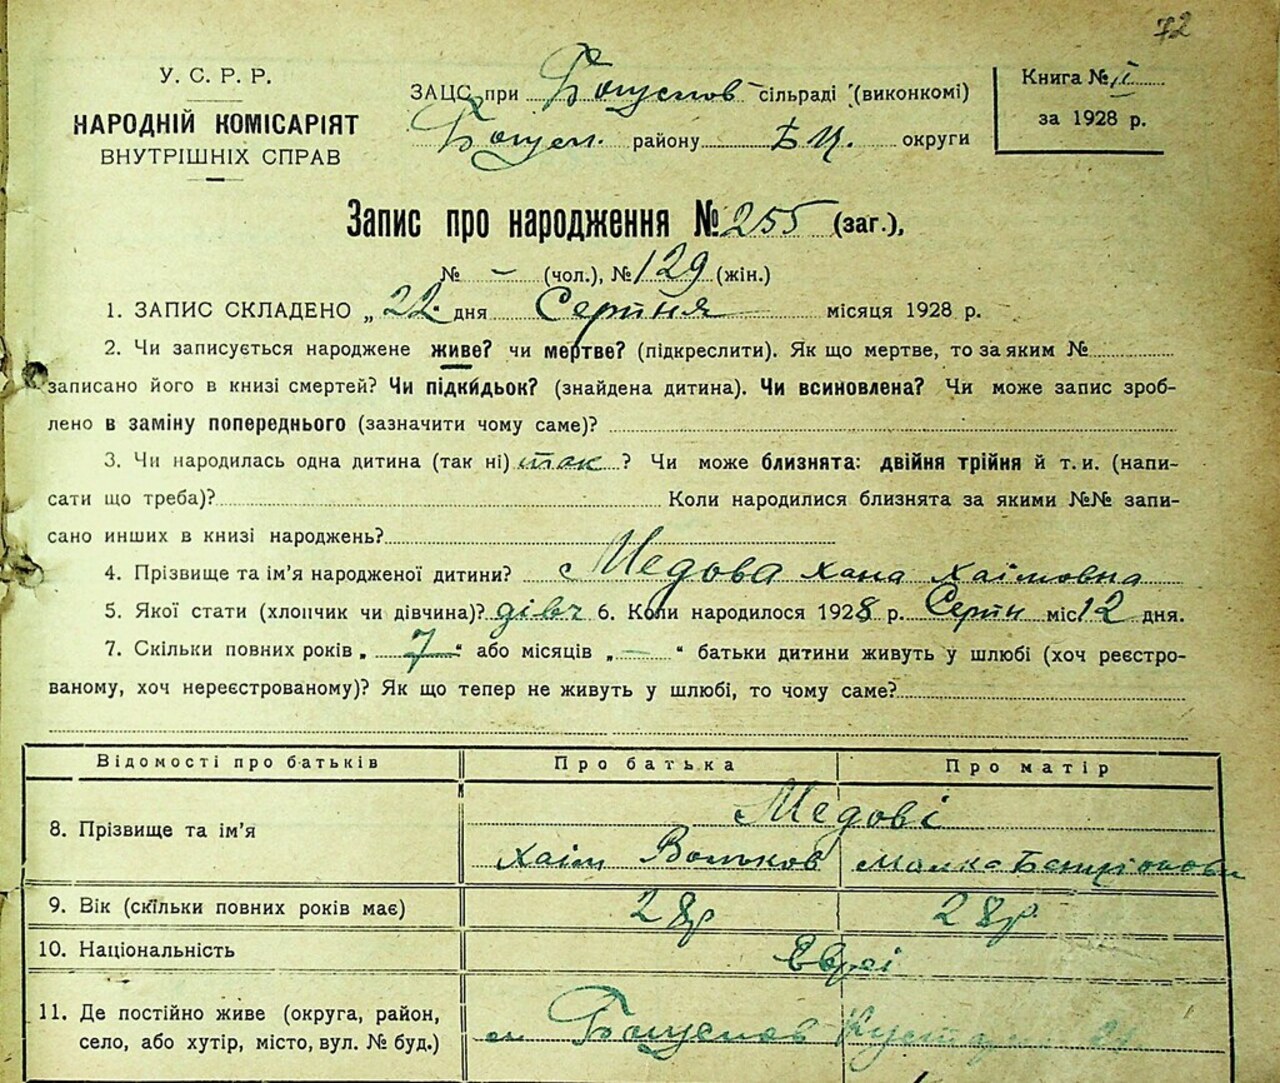 72
У. С. Р. Р.
НАРОДНІЙ КОМІСАРІЯТ
ВНУТРІШНІХ СПРАВ
ЗАЦС при Богуслав сільраді (виконкомі)
Богусл. району Б Ц. округи
Книга № II
за 1928 р.
Запис про народження № 255 (заг.),
№ – (чол.), № 129 (жін.)
1. ЗАПИС СКЛАДЕНО „ 22 дня Серпня місяця 1928 р.
2. Чи записується народжене живе? чи мертве? (підкреслити). Як що мертве, то за яким №
записано його в книзі смертей? Чи підкидьок? (знайдена дитина). Чи всиновлена? Чи може запис зроб-
лено в заміну попереднього (зазначити чому саме)?
3. Чи народилась одна дитина (так ні) так ? Чи може близнята: двійня трійня й т. и. (напи-
сати що треба)? Коли народилися близнята за якими №№ запи-
сано инших в книзі народжень?
4. Прізвище та ім’я народженої дитини? Медова Хана Хаімовна
5. Якої стати (хлопчик чи дівчина)? дівч 6. Коли народилося 1928 р. Серпн міс 12 дня.
7. Скільки повних років „ 7 “ або місяців „ – “ батьки дитини живуть у шлюбі (хоч реєстро-
ваному, хоч нереєстрованому)? Як що тепер не живуть у шлюбі, то чому саме?
Відомості про батьків Про батька Про матір
8. Прізвище та ім’я Медові
Хаім Вольков Малка
9. Вік (скільки повних років має) 28р 28р
10. Національність Євреі
11. Де постійно живе (округа, район,
село, або хутір, місто, вул. № буд.) м Богуслав